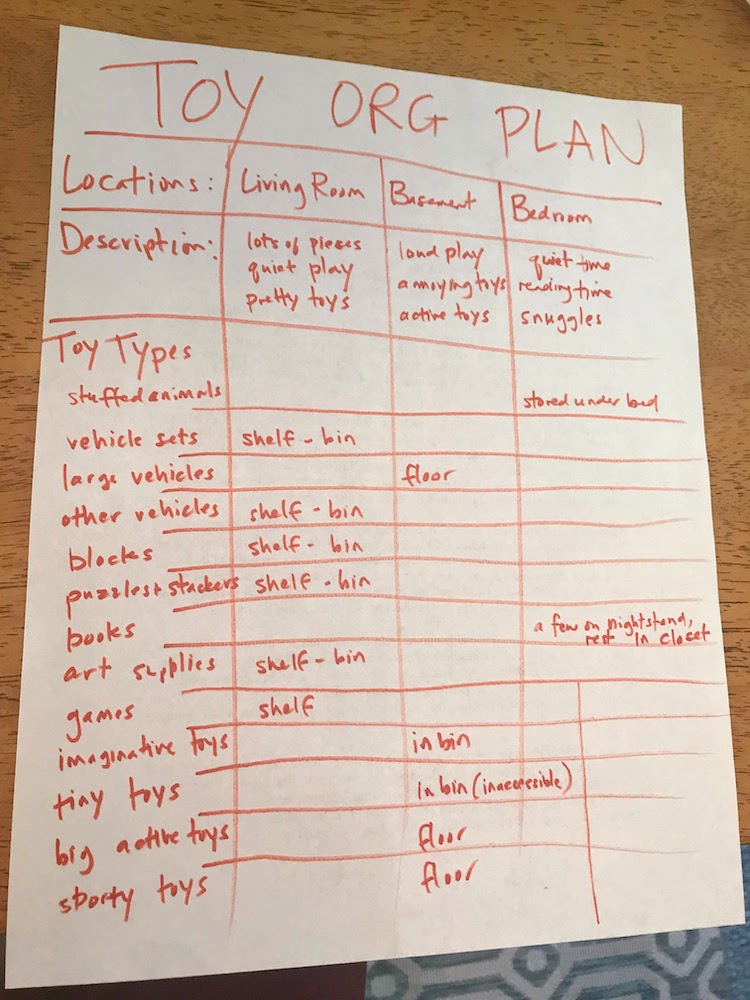 TOY ORG PLAN
Locations: Living Room Basement Bedroom
Description: lots of pieces loud play quiet time
quiet play annoying toys reading time
pretty toys active toys snuggles
Toy Types
stuffed animals stored under bed
vehicle sets shelf - bin
large vehicles floor
other vehicles shelf - bin
blocks shelf - bin
puzzles + stackers shelf - bin
books a few on nightstand,
rest in closet
art supplies shelf - bin
games shelf
imaginative toys in bin
tiny toys in bin (inaccessible)
big active toys floor
sporty toys floor